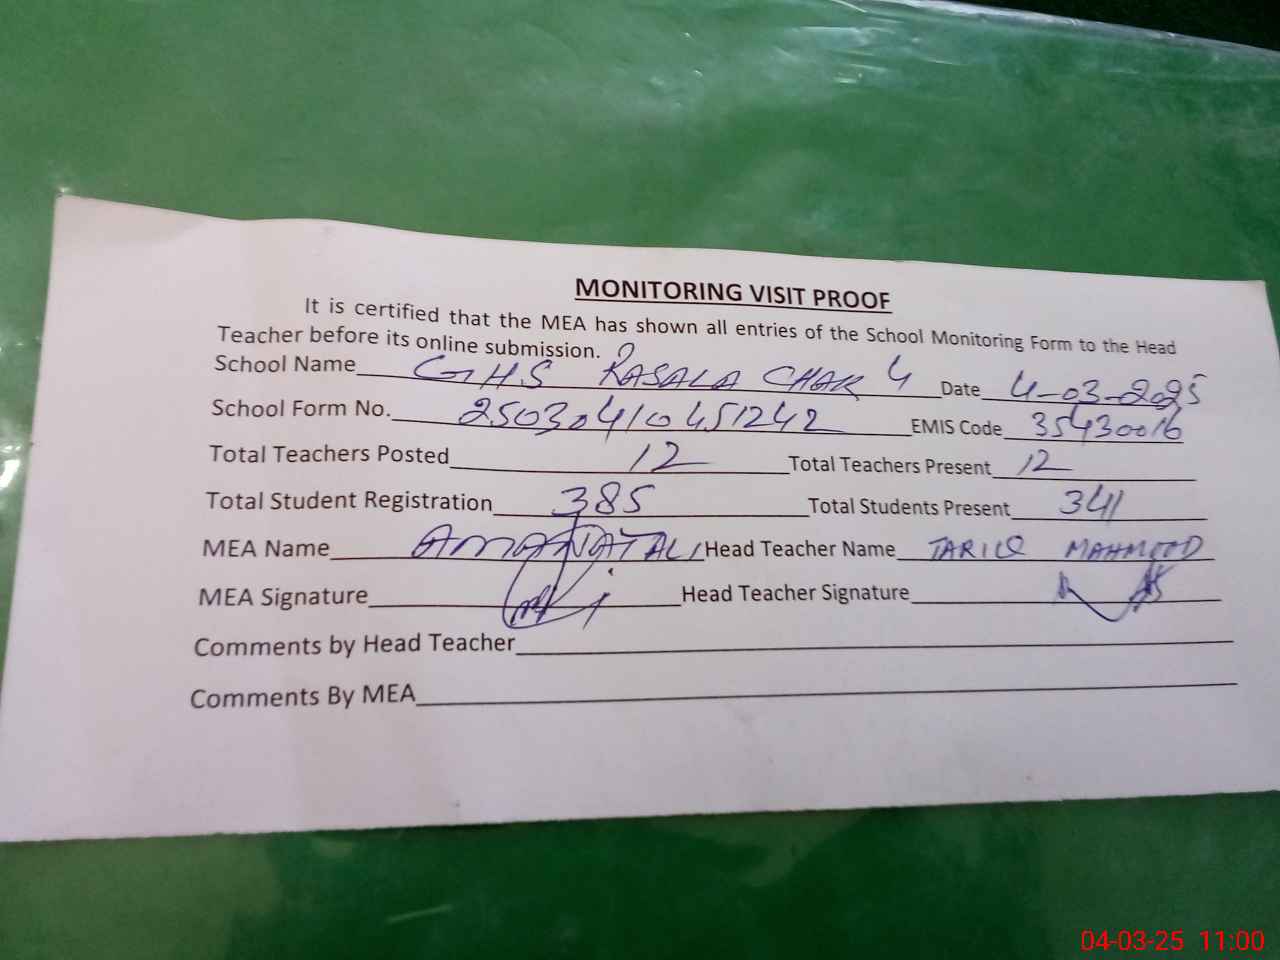 MONITORING VISIT PROOF
It is certified that the MEA has shown all entries of the School Monitoring Form to the Head
Teacher before its online submission.
School Name GHS RASALA CHAK 4 Date 4-03-2025
School Form No. 25030410451242 EMIS Code 35430016
Total Teachers Posted 12 Total Teachers Present 12
Total Student Registration 385 Total Students Present 341
MEA Name AMANAT ALI Head Teacher Name TARIQ MAHMOOD
MEA Signature Head Teacher Signature
Comments by Head Teacher
Comments By MEA
04-03-25 11:00